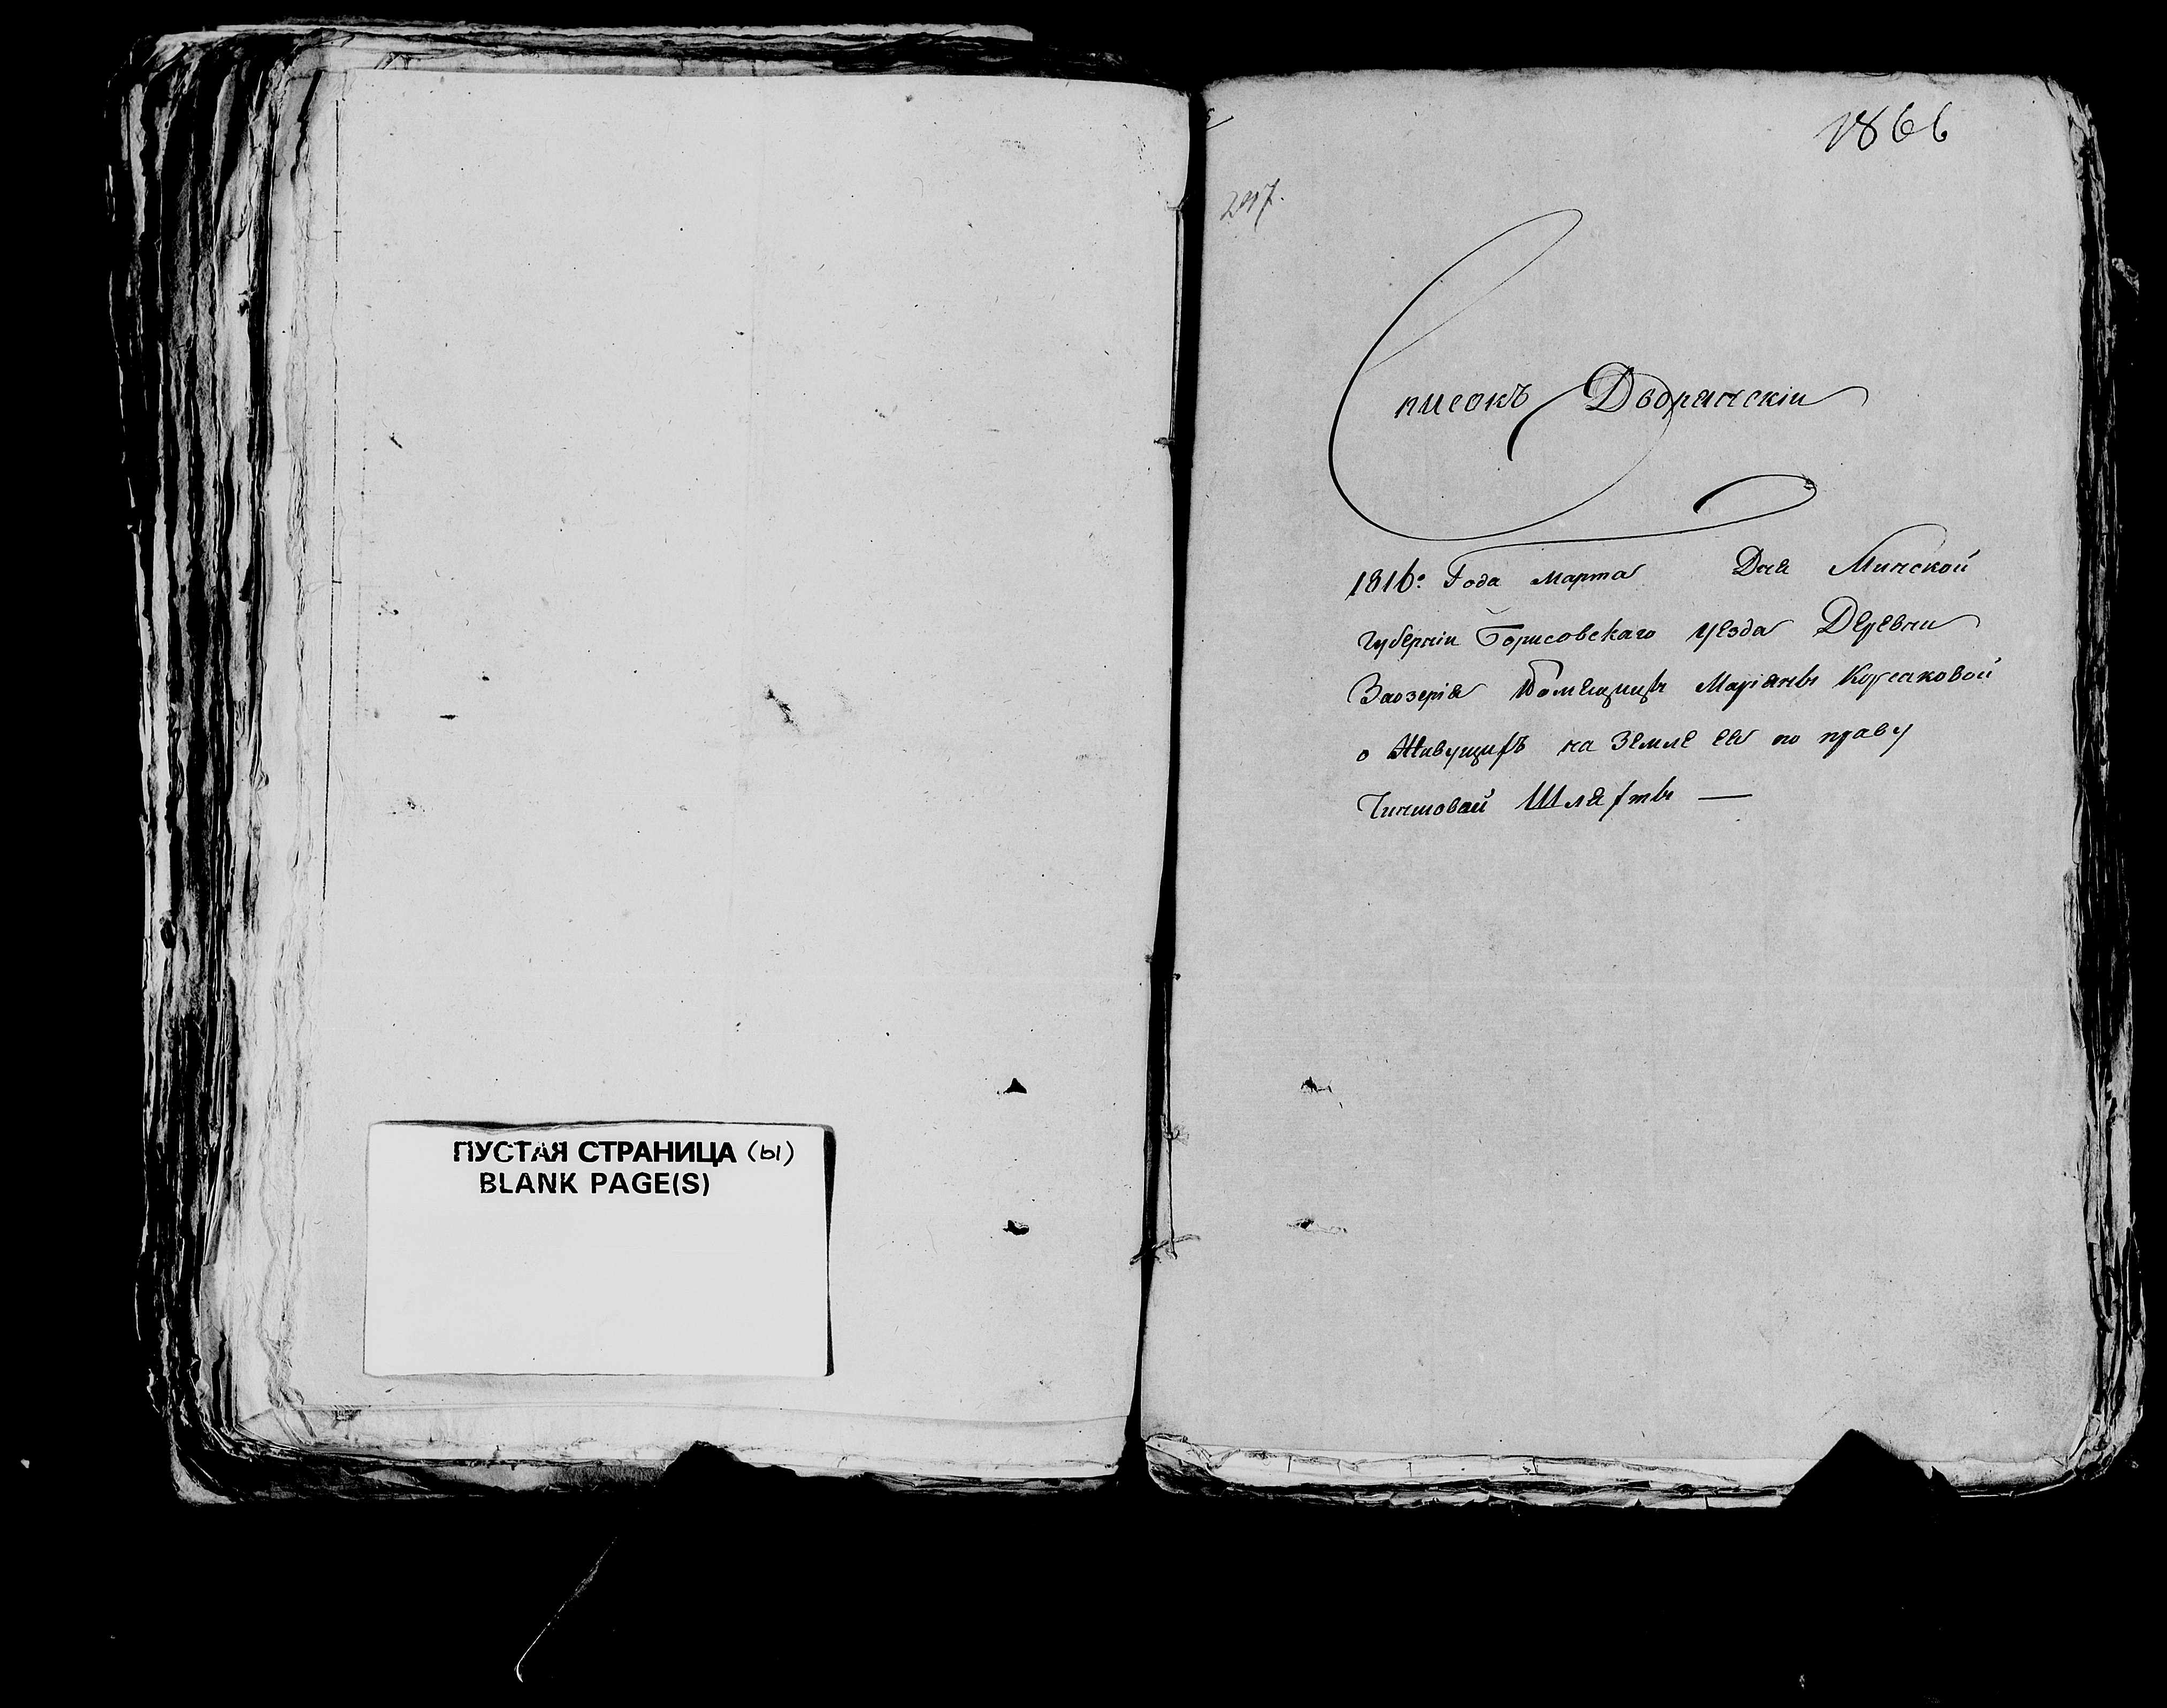 ПУСТАЯ СТРАНИЦА (ы)
BLANK PAGE(S)
1866
Списокъ Дворянскіи
1816го Года марта Дня Минской
Губерніи Борисовскаго уезда Деревни
Заозерія Помещицы Маріянны Корсаковой
о Живущихъ на Земле ея по праву
Чиншовай Шляхты —